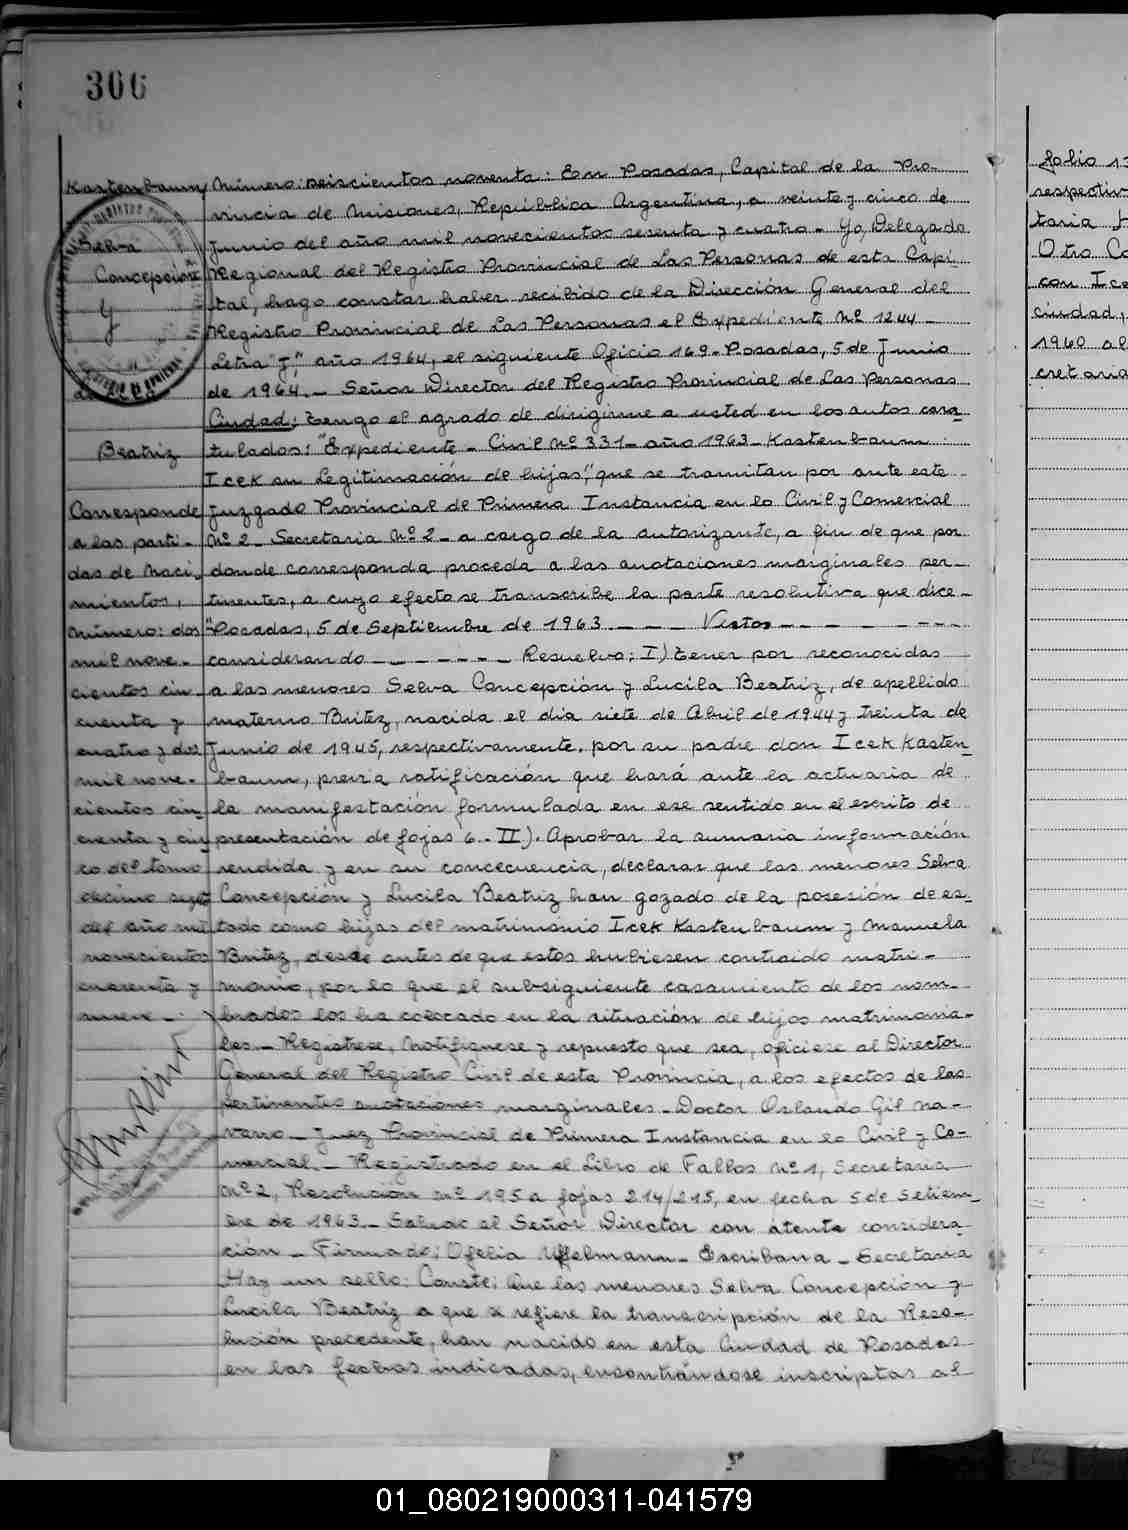 306
Kastenbaum
Selva
Concepción
y
Beatriz
Corresponde
a las parti-
das de Naci-
mientos,
número: dos
mil nove-
cientos cin-
cuenta y
cuatro y dos
mil nove-
cientos cin-
cuenta y cin
co del tomo
décimo
del año mil
novecientos
cuarenta y
nueve -.
Número: seiscientos noventa: En Posadas, Capital de la Pro-
vincia de Misiones, República Argentina, a veinte y cinco de
Junio del año mil novecientos sesenta y cuatro - Yo, Delegado
Regional del Registro Provincial de Las Personas de esta Capi-
tal, hago constar haber recibido de la Dirección General del
Registro Provincial de Las Personas el Expediente Nº 1244 -
Letra "J", año 1964, el siguiente Oficio 169 - Posadas, 5 de Junio
de 1964. - Señor Director del Registro Provincial de Las Personas
Ciudad: Tengo el agrado de dirigirme a usted en los autos cara-
tulados: "Expediente - Civil Nº 331 - año 1963 - Kastenbaum
Icek su Legitimación de hijas", que se tramitan por ante este
Juzgado Provincial de Primera Instancia en lo Civil y Comercial
Nº 2 - Secretaria Nº 2 - a cargo de la autorizante, a fin de que por
donde corresponda proceda a las anotaciones marginales per-
tinentes, a cuyo efecto se transcribe la parte resolutiva que dice -
"Posadas, 5 de Septiembre de 1963. - - - Vistos - - - - - - - - -
considerando - - - - - - - Resuelvo: I) Tener por reconocidas
a las menores Selva Concepción y Lucila Beatriz, de apellido
materno Britez, nacida el dia siete de Abril de 1944 y treinta de
Junio de 1945, respectivamente, por su padre don Icek Kasten-
baum, previa ratificación que hará ante la actuaria de
la manifestación formulada en ese sentido en el escrito de
presentación de fojas 6 - II). Aprobar la sumaria información
rendida y en su concecuencia, declarar que las menores Selva
Concepción y Lucila Beatriz han gozado de la posesión de es-
tado como hijas del matrimonio Icek Kastenbaum y Manuela
Britez, desde antes de que estos hubiesen contraido matri-
monio, por lo que el subsiguiente casamiento de los nom-
brados los ha colocado en la situación de hijos matrimonia-
les. - Registrese, Notifiquese y repuesto que sea, oficiese al Director
General del Registro Civil de esta Provincia, a los efectos de las
pertinentes anotaciones marginales - Doctor Orlando Gil Na-
varro - Juez Provincial de Primera Instancia en lo Civil y Co-
mercial. - Registrado en el Libro de Fallos Nº 1, Secretaria
Nº 2, Resolución Nº 195 a fojas 214/215, en fecha 5 de Setiem-
bre de 1963. - Saludo al Señor Director con atenta considera-
ción - Firmado: Ofelia Uffelmann - Escribana - Secretaria
Hay un sello: Conste: Que las menores Selva Concepción y
Lucila Beatriz a que se refiere la transcripción de la Reso-
lución precedente, han nacido en esta Ciudad de Posadas
en las fechas indicadas, encontrándose inscriptas al
folio 13
respectiv
taria
Otro Co
con Ice
ciudad,
1960 al
cretaria
01_080219000311-041579